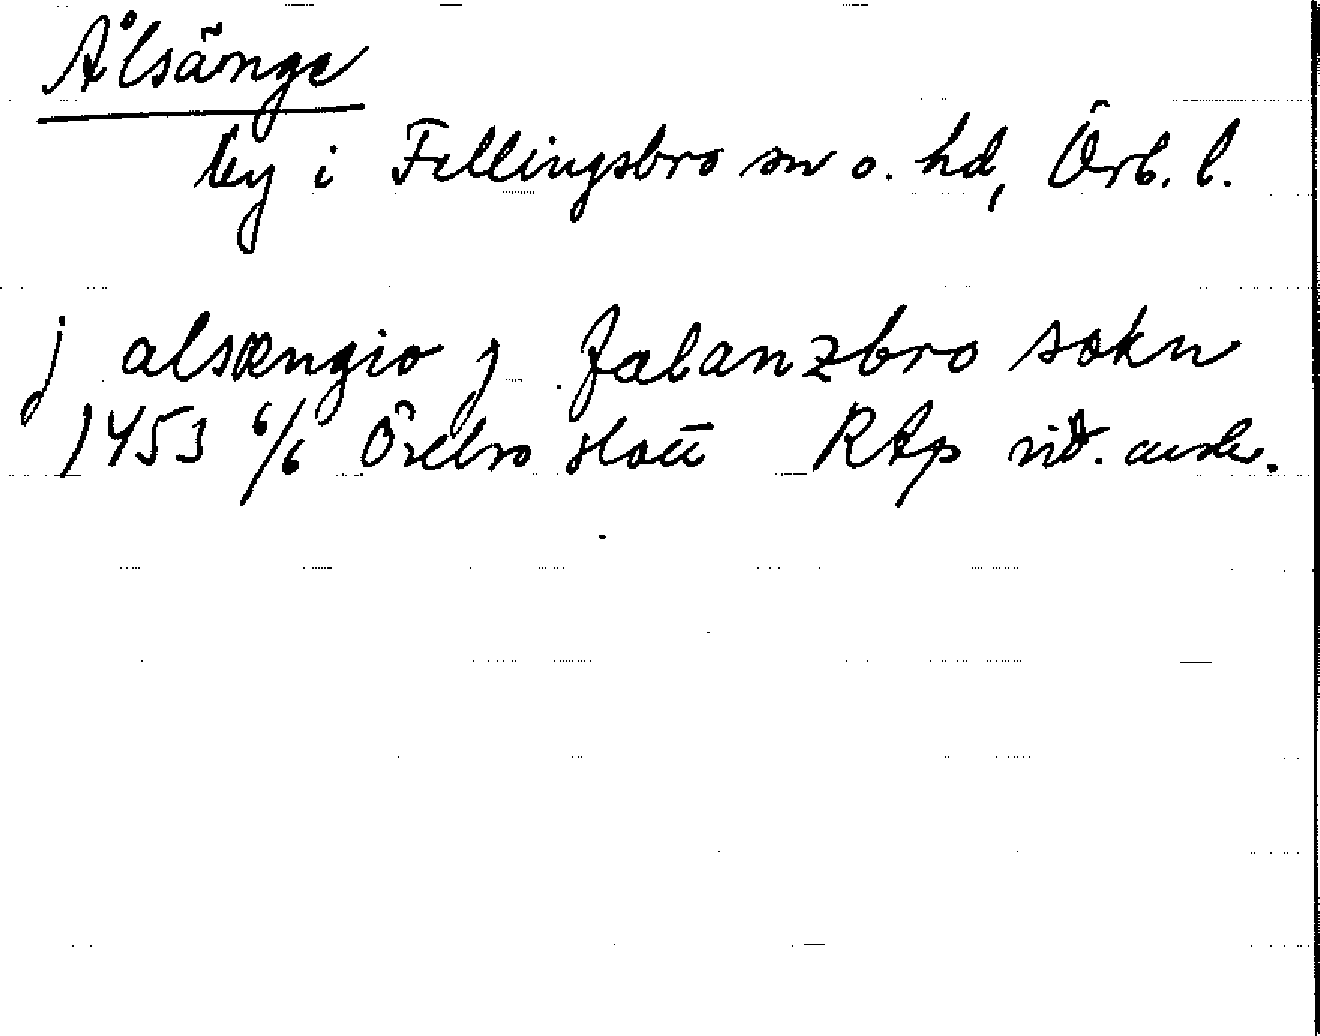 Ålsänge
by i Fellingsbro sn o. hd, Örb. l.
j alsængio j fælanzbro sokn
1453 6/6 Örebro slott RAp vid. avskr.